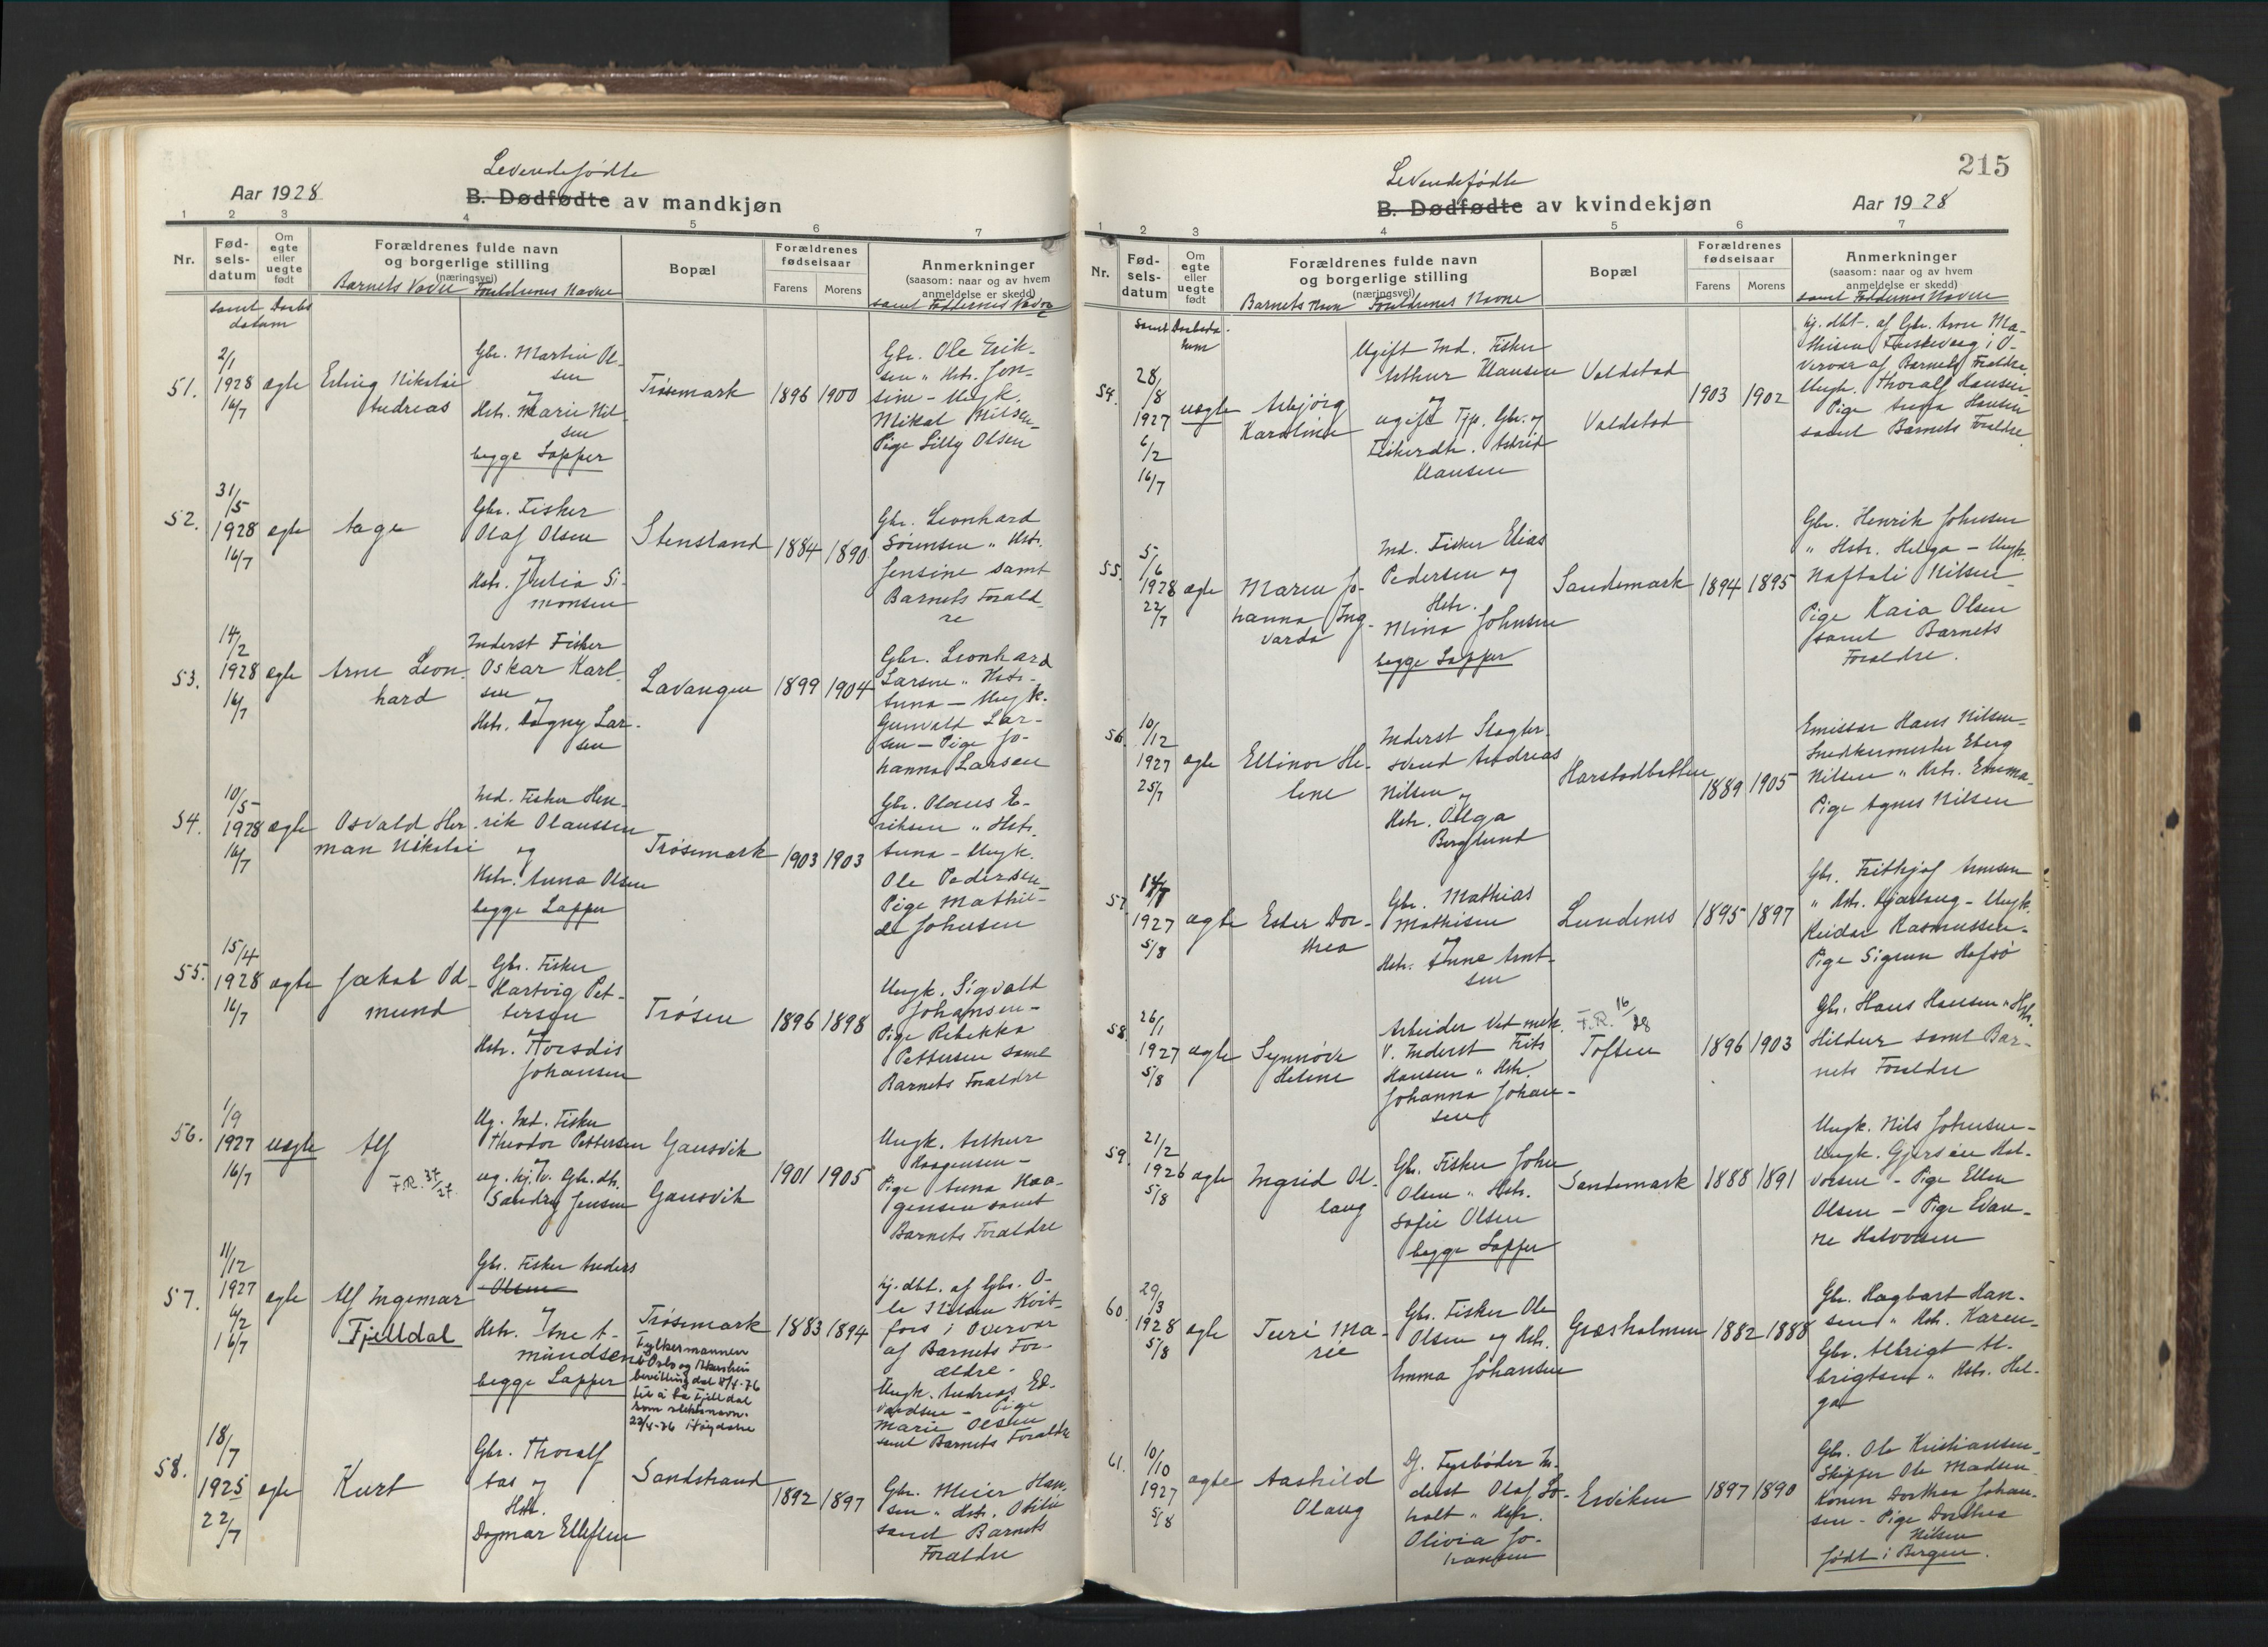 Levendefødte
Aar 1928
B. Dødfødte av mandkjøn
1 2 3 4 5 6 7
Nr.
Fød-
sels-
datum
Om
egte
eller
uegte
født
Forældrenes fulde navn
og borgerlige stilling
(næringsvei)
Barnets Navn Forældrenes Navne
Bopæl
Forældrenes
fødselsaar
Farens Morens
Anmerkninger
(saasom: naar og av hvem
anmeldelse er skedd)
samt Faddernes Navne
samt Daabs
datum
51.
2/1
1928
16/7
ægte
Erling Nikolai
Andreas
Gbr. Martin Ol-
sen
og
Hstr. Marie Nil-
sen
begge Lapper
Trøsemark
1896 1900
Gbr. Ole Erik-
sen " Hstr. Jen-
sine - Ungk.
Mikal Nilsen -
Pige Lilly Olsen
52.
31/5
1928
16/7
ægte
Aage
Gbr. Fisker
Olaf Olsen
og
Hstr. Julia Si-
monsen
Stensland
1884 1890
Gbr. Leonhard
Sørensen " Hstr.
Jensine samt
Barnets Foræld-
re
53.
14/2
1928
16/7
ægte
Arne Leon-
hard
Inderst Fisker
Oskar Karl-
sen
og
Hstr. Dagny Lar-
sen
Lavangen
1899 1904
Gbr. Leonhard
Larsen " Hstr.
Anna - Ungk.
Gunvald Lar-
sen - Pige Jo-
hanna Larsen
54.
10/5
1928
16/7
ægte
Osvald Her-
man Nikolai
Ind. Fisker Hen-
rik Olaussen
og
Hstr. Anna Olsen
begge Lapper
Trøsemark
1903 1903
Gbr. Olaus E-
riksen " Hstr.
Anna - Ungk.
Ole Pedersen -
Pige Mathil-
de Johnsen
55.
15/4
1928
16/7
ægte
Jakob Od-
mund
Gbr. Fisker
Hartvig Pet-
tersen
Hstr. Hordis
Johansen
Trøsen
1896 1898
Ungk. Sigvald
Johansen -
Pige Rebekka
Pettersen samt
Barnets Forældre
56.
1/9
1927
16/7
uægte
Alf
F.R. 37/27.
Ug. Ind. Fisker
Theodor Pettersen
og
ug. hj.v. Gbr. dtr.
Sandra Jensen
Gausvik
Gausvik
1901 1905
Ungk. Arthur
Haagensen -
Pige Anna Haa-
gensen samt
Barnets Forældre
57.
11/12
1927
6/2
16/7
ægte
Alf Ingemar
Fjelldal
Gbr. Fisker Anders
Olsen
og
Hstr. Ane A-
mundsen
begge Lapper
Trøsemark
Fylkesmannen
i Oslo og Akershus
bevilling dat 8/4-76
til å ta Fjelldal
som slektsnavn.
1883 1894
hj. dbt. af Gbr. O-
le Nilsen Kvit-
fors i Overvær
af Barnets For-
ældre -
Ungk. Andreas Ed-
vardsen - Pige
Marie Olsen
samt Barnets Forældre
58.
18/7
1925
22/7
ægte
Kurt
Gbr. Thoralf
Aas og
Hstr.
Dagmar Ellefsen
Sandstrand
1892 1897
Gbr. Meier Han-
sen " Hstr. Otilie
samt Barnets
Forældre
215
Levendefødte
B. Dødfødte av kvindekjøn
Aar 1928
1 2 3 4 5 6 7
Nr.
Fød-
sels-
datum
Om
egte
eller
uegte
født
Forældrenes fulde navn
og borgerlige stilling
(næringsvei)
Barnets Navn Forældrenes Navne
Bopæl
Forældrenes
fødselsaar
Farens Morens
Anmerkninger
(saasom: naar og av hvem
anmeldelse er skedd)
samt Faddernes Navne
samt Daabsda-
tum
54.
28/8
1927
6/2
16/7
uægte
Asbjørg
Karoline
Ugift Ind. Fisker
Arthur Klausen
og
ugift Tjp. Gbr. og
Fiskerdtr. Astrid
Klausen
Voldstad
Voldstad
1903 1902
hj. dbt. af Gbr. Arne Ma-
thisen i O-
vervær af Barnets Forældre
Ungk. Thoralf Hansen -
Pige Hansen
samt Barnets Forældre
55.
5/6
1928
22/7
ægte
Maren Jo-
hanna Ing-
varda
Ind. Fisker Elias
Pedersen og
Hstr.
Mina Johnsen
begge Lapper
Sandemark
1894 1895
Gbr. Henrik Johnsen
" Hstr. Helga - Ungk.
Naftali Nilsen -
Pige Kaia Olsen
samt Barnets
Forældre.
56.
10/12
1927
25/7
ægte
Ellinor He-
lene
Inderst Slagter-
svend Andreas
Nilsen og
Hstr. Olga
Berglund
Harstadbotten
1889 1905
Emissær Hans Nilsen -
Snedkermester Eberg
Nilsen " Hstr. Emma -
Pige Agnes Nilsen
57.
1927
5/8
ægte
Ester Dor-
thea
Gbr. Mathias
Mathisen
og
Hstr. Anne Arnt-
sen
Lundenes
1895 1897
Gbr. Fritkjof Arnesen
" Hstr. Hjørlaug - Ungk.
Reidar Rasmussen -
Pige Sigrun Hofsø
58.
26/1
1927
5/8
ægte
Synnøve
Helene
Arbeider Ved mek.
V. Inderst Frits
Hansen " Hstr.
Johanna Johan-
sen
F.R. 16/28
Toften
1896 1903
Gbr. Hans Hansen " Hstr.
Hildur samt Bar-
nets Forældre
59.
21/2
1926
5/8
ægte
Ingrid Ol-
laug
Gbr. Fisker John
Olsen " Hstr.
Sofie Olsen
begge Lapper
Sandemark
1888 1891
Ungk. Nils Johnsen -
Ungk. Hal-
vorsen - Pige Ellen
Olsen - Pige
60.
29/3
1928
5/8
ægte
Turi Ma-
rie
Gbr. Fisker Ole
Olsen og Hstr.
Emma Johansen
Græsholmen
1882 1888
Gbr. Hagbart Han-
sen " Hstr. Karen -
Gbr. Albrigt Al-
brigtsen " Hstr. Hel-
ga
61.
10/10
1927
5/8
ægte
Aashild
Olaug
Dj. Fyrbøder In-
derst Olaf So-
holt " Hstr.
Olivia Jo-
hansen
Erviken
1897 1890
Gbr. Ole Kristiansen -
Skipper Ole Madsen -
Konen Dorthea Johan-
sen - Pige Dorthea
Nilsen
født i Bergen.